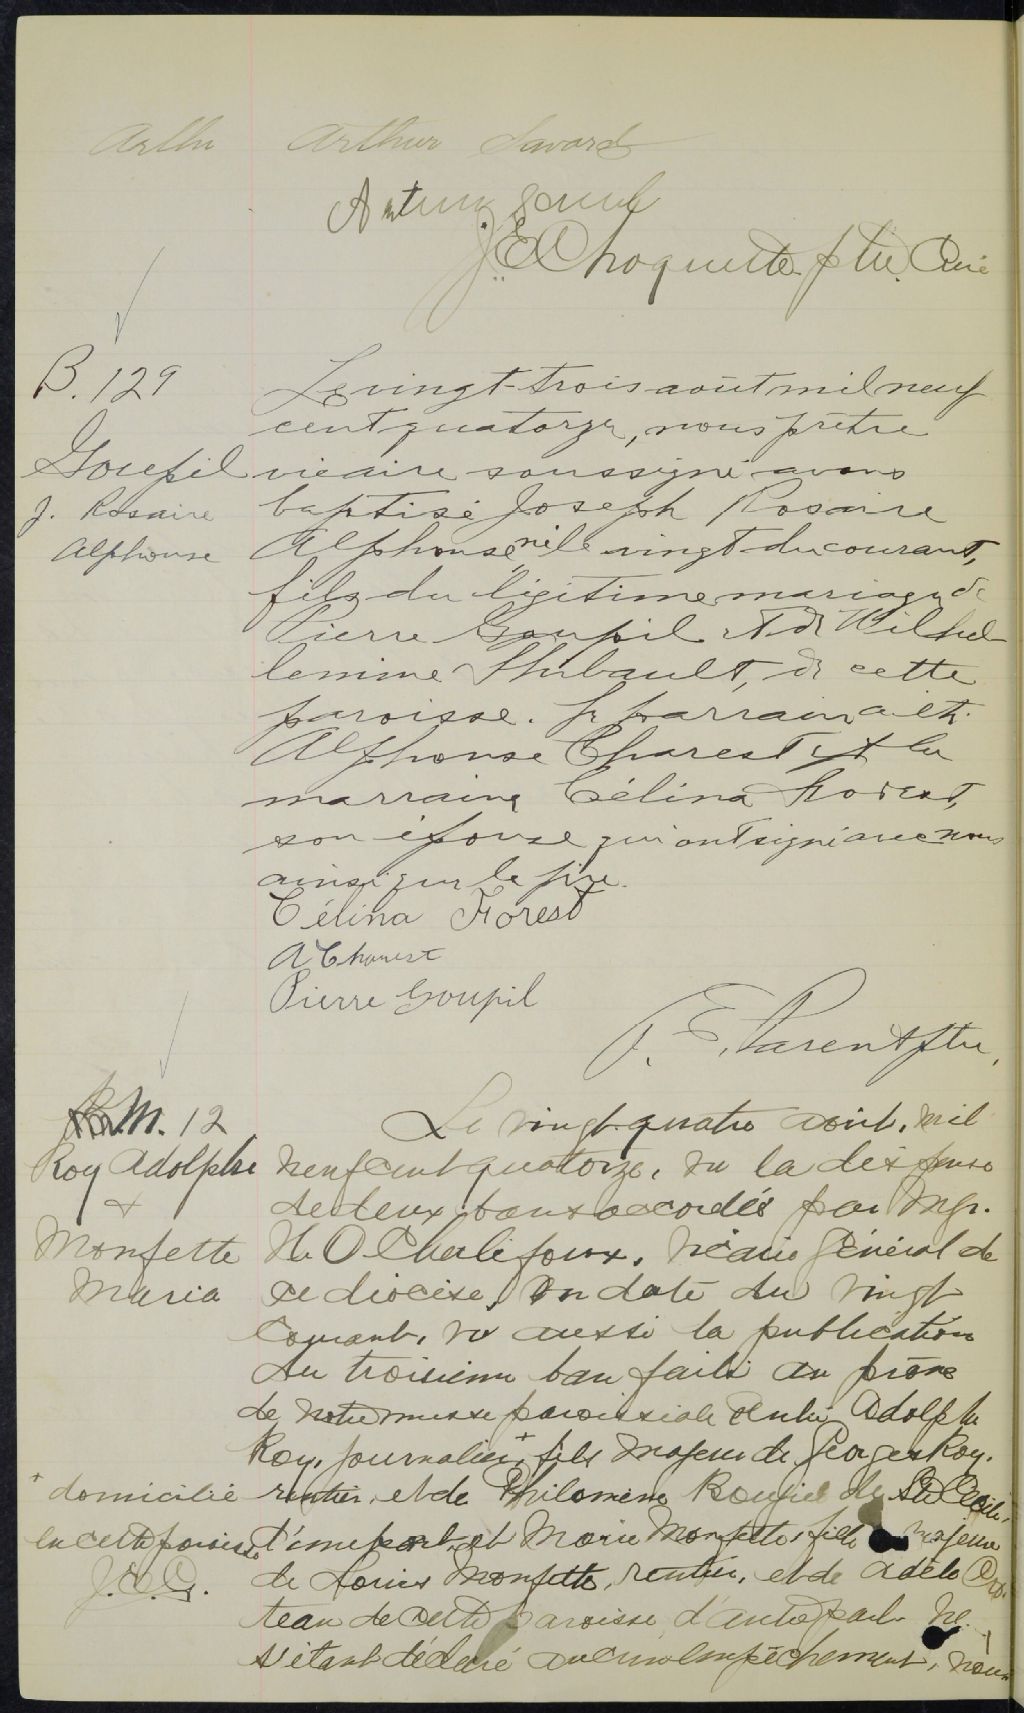 Arthu Arthur Savard
J. E. Choquette ptre. Curé
B. 129
Goupil
J. Rosaire
Alphonse
Le vingt-trois août mil neuf
cent quatorze, nous prêtre
vicaire soussigné avons
baptisé Joseph Rosaire
Alphonse, né le vingt du courant,
fils du légitime mariage de
Pierre Goupil et de Wilhel
lemine Thibault, de cette
paroisse. Le parrain a été
Alphonse Charest et la
marraine Célina Forest,
son épouse qui ont signé avec nous
ainsi que le père.
Célina Forest
A Charest
Pierre Goupil
P. E. Parent ptre,
M. 12
Roy Adolphe
&
Monfette
Maria
Le vingt-quatre août, mil
neuf cent quatorze, vu la dispense
de deux bans accordés par Mgr.
H. O Chalifoux, Vicaire Général de
ce diocèse, en date du vingt
courant, vu aussi la publication
du troisième ban faite au prône
de notre messe paroissiale entre Adolphe
Roy, journalier, + fils majeur de Georges Roy,
rentier, et de Philomène de Ste Cécile,
+ domicilié
en cette paroisse
J. E. C.
d'une part, et Marie Monfette, fille majeure
de Louis Monfette, rentier, et de Adèle Cro
teau de cette paroisse, d'autre part. Ne
s'étant déclaré aucun empêchement, nous